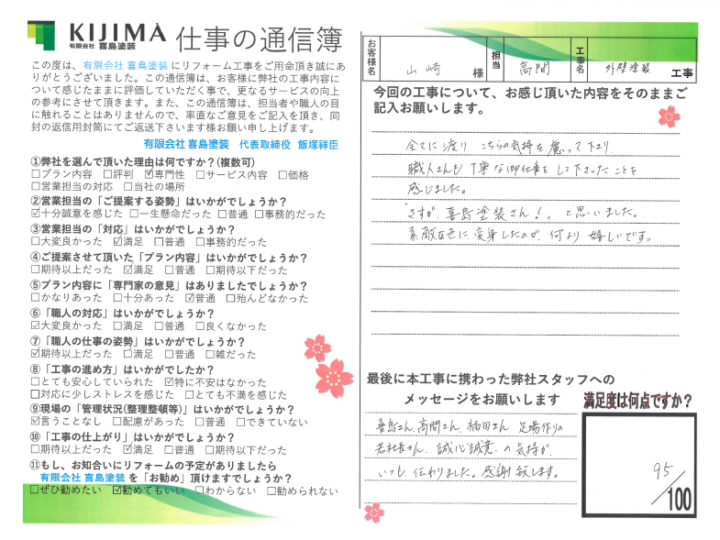 KIJIMA
有限会社 喜島塗装
仕事の通信簿
この度は、有限会社 喜島塗装 にリフォーム工事をご用命頂き誠にあ
りがとうございました。この通信簿は、お客様に弊社の工事内容に
ついて感じたままに評価していただく事で、更なるサービスの向上
の参考にさせて頂きます。また、この通信簿は、担当者や職人の目
に触れることはありませんので、率直なご意見をご記入を頂き、同
封の返信用封筒にてご返送下さいます様お願い申し上げます。
有限会社 喜島塗装 代表取締役 飯塚祥臣
①弊社を選んで頂いた理由は何ですか?(複数可)
□プラン内容 □評判 ☑専門性 □サービス内容 □価格
□営業担当の対応 □当社の場所
②営業担当の「ご提案する姿勢」はいかがでしょうか?
☑十分誠意を感じた □一生懸命だった □普通 □事務的だった
③営業担当の「対応」はいかがでしょうか?
□大変良かった ☑満足 □普通 □事務的だった
④ご提案させて頂いた「プラン内容」はいかがでしょうか?
□期待以上だった ☑満足 □普通 □期待以下だった
⑤プラン内容に「専門家の意見」はありましたでしょうか?
□かなりあった □十分あった ☑普通 □殆んどなかった
⑥「職人の対応」はいかがでしょうか?
☑大変良かった □満足 □普通 □良くなかった
⑦「職人の仕事の姿勢」はいかがでしょうか?
☑期待以上だった □満足 □普通 □雑だった
⑧「工事の進め方」はいかがでしたか?
□とても安心していられた ☑特に不安はなかった
□対応に少しストレスを感じた □とても不満を感じた
⑨現場の「管理状況(整理整頓等)」はいかがでしょうか?
☑言うことなし □配慮があった □普通 □できていない
⑩「工事の仕上がり」はいかがでしょうか?
□期待以上だった ☑満足 □普通 □期待以下だった
⑪もし、お知合いにリフォームの予定がありましたら
有限会社 喜島塗装 を「お勧め」頂けますでしょうか?
□ぜひ勧めたい ☑勧めてもいい □わからない □勧められない
お客様名 山崎 様 担当 高間 工事名 外壁塗装 工事
今回の工事について、お感じ頂いた内容をそのままご
記入お願いします。
全てに渡り こちらの気持を慮って下り
職人さんも 丁寧な御仕事をして下さったことを
感じました。
"さすが、喜島塗装さん!"と思いました。
素敵な色に変身したのが、何より嬉しいです。
最後に本工事に携わった弊社スタッフへの
メッセージをお願いします
喜島さん、高間さん、柿田さん 足場作りの
若社長さん、誠心誠意の気持が、
いつも伝わりました。感謝致します。
満足度は何点ですか?
95
/100